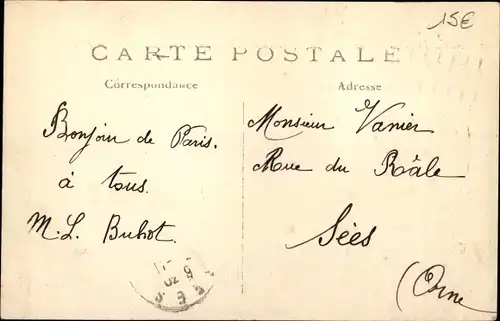 15€
CARTE POSTALE
Correspondance
Adresse
Bonjour de Paris.
à tous.
M. L. Buhot.
Monsieur Vanier
Rue du Râle
Sées
(Orne